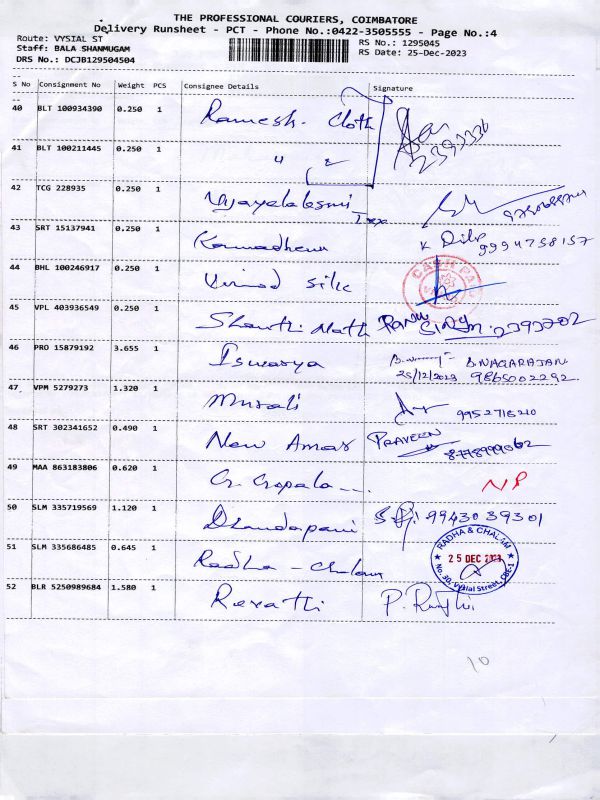 THE PROFESSIONAL COURIERS, COIMBATORE
Delivery Runsheet - PCT - Phone No.:0422-3505555 - Page No.:4
Route: VYSIAL ST
Staff: BALA SHANMUGAM
DRS No.: DCJB129504504
RS No.: 1295045
RS Date: 25-Dec-2023
S No Consignment No Weight PCS Consignee Details Signature
40 BLT 100934390 0.250 1 Ramesh Cloth
2393336
41 BLT 100211445 0.250 1 " "
42 TCG 228935 0.250 1 Vijayalaksmi Tex
43 SRT 15137941 0.250 1 Kamadhenu K Dilip 9994758157
44 BHL 100246917 0.250 1 Vinod Silk
45 VPL 403936549 0.250 1 Shanthi Nath
46 PRO 15879192 3.655 1 Iswarya B.NAGARAJAN
25/12/2023 9865002292
47 VPM 5279273 1.320 1 Murali 9952718210
48 SRT 302341652 0.490 1 New Amar PRAVEEN
49 MAA 863183806 0.620 1 G. Gopala... NP
50 SLM 335719569 1.120 1 Dhandapani 9943039301
51 SLM 335686485 0.645 1 Radha - Chalam
RADHA & CHALAM
25 DEC 2023
No. 30, Vysial Street, CBE-1
52 BLR 5250989684 1.580 1 Revathi
10